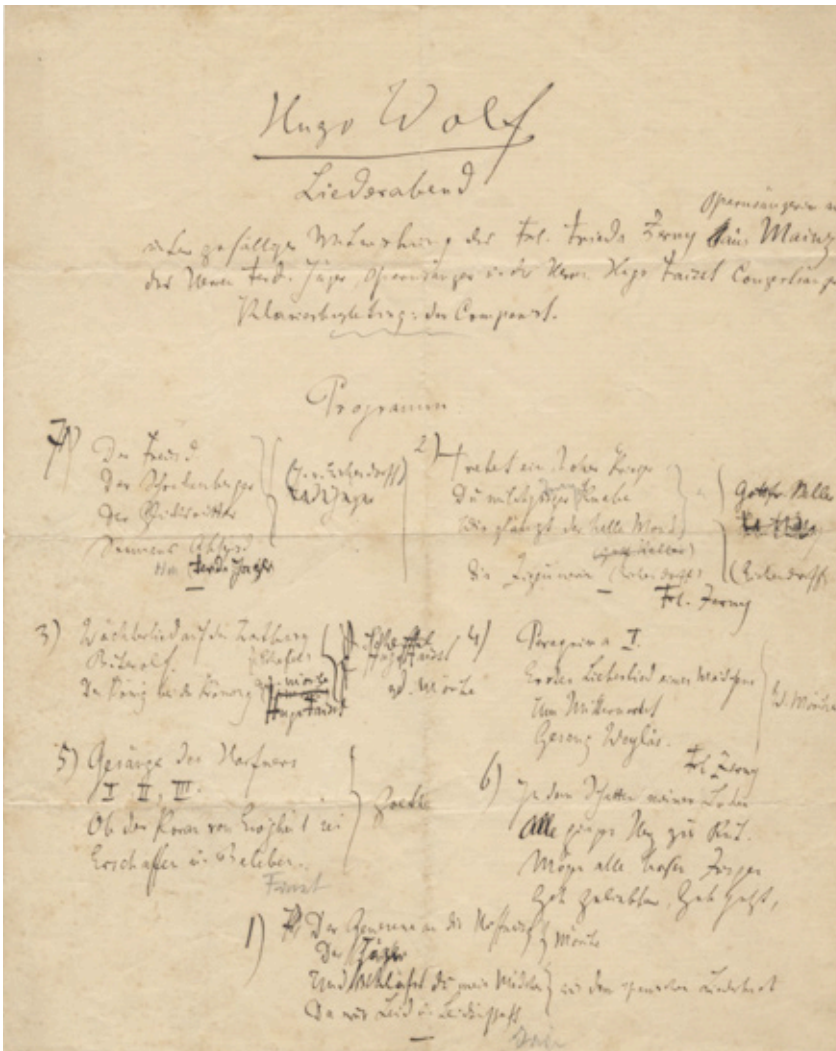 Hugo Wolf
Liederabend
Opernsängerin
unter gefälliger Mitwirkung des Frl. Frieda Zerny aus Mainz
des Herrn Ferd. Jäger, Opernsänger u. des Herrn Hugo Faisst Conzertsänger
Klavierbegleitung: der Componist.
Programm
7)
Der Freund
Der Schreckenberger
Der Glücksritter
Seemanns Abschied
Herr Ferd. Jäger
2)
Tretet ein hoher Krieger
Du milchjunger Knabe
Wie glänzt der helle Mond
Gottfr. Keller
Die Zigeunerin (Eichendorff)
(Eichendorff)
Frl. Zerny
3) Wächterlied auf der Wartburg
Biterolf
Der König bei der Krönung
Hugo Faisst
Ed. Mörike
4) Peregrina I.
Erstes Liebeslied eines Mädchens
Um Mitternacht
Gesang Weylas.
Ed. Mörike
Frl. Zerny
5) Gesänge des Harfners
I II, III.
Ob der Koran von Ewigkeit sei
Erschaffen u. Beleben.
Goethe
Faisst
6) In dem Schatten meiner Locken
Alle gingen Herz zur Ruh.
Mögen alle bösen Zungen
Geh Geliebter, Geh jetzt,
1) Der Genesene an die Hoffnung
Der Jäger
Mörike
Und schläfst du mein Mädchen
aus dem spanischen Liederbuch
Da nur Leid u. Leidenschaft